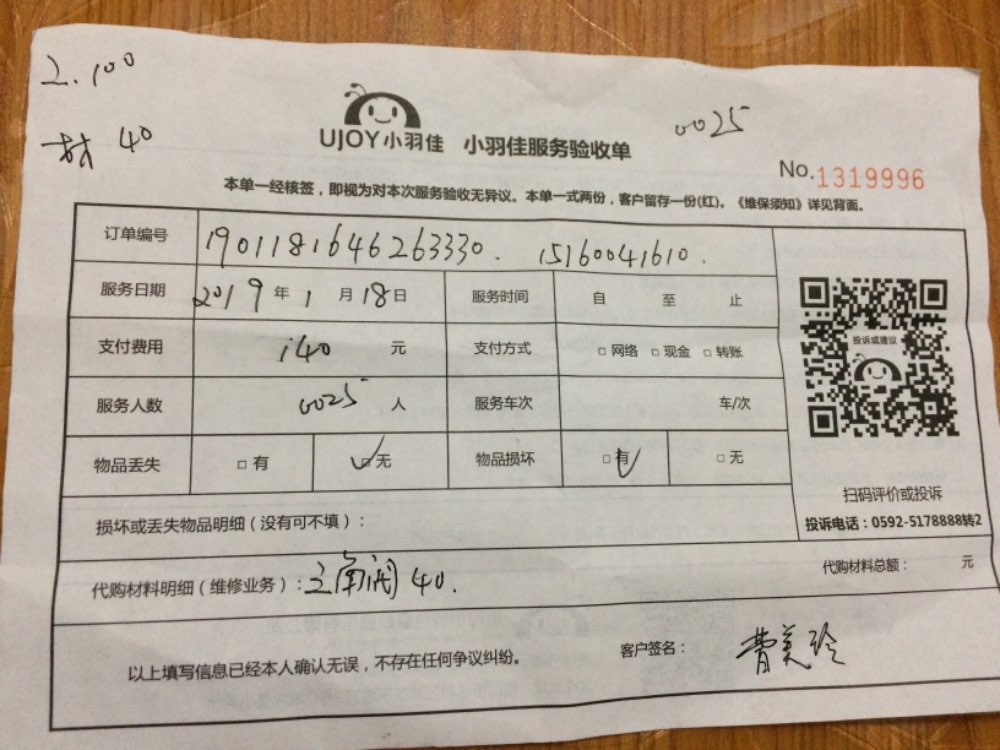 工.100
材 40
UJOY小羽佳 小羽佳服务验收单
0025
No.1319996
本单一经核签，即视为对本次服务验收无异议。本单一式两份，客户留存一份(红)。《维保须知》详见背面。
订单编号 1901181646263330. 15160041610.
服务日期 2019年1月18日 服务时间 自 至 止
支付费用 140 元 支付方式 □网络 □现金 □转账
服务人数 0025 人 服务车次 车/次
物品丢失 □有 ☑无 物品损坏 ☑有 □无
投诉或建议
扫码评价或投诉
投诉电话：0592-5178888转2
损坏或丢失物品明细（没有可不填）：
代购材料明细（维修业务）：三角阀 40.
代购材料总额： 元
以上填写信息已经本人确认无误，不存在任何争议纠纷。
客户签名：曹美玲